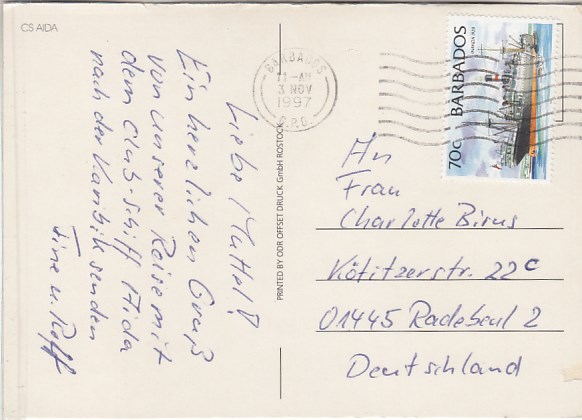 CS AIDA
Liebe Muttel!
Ein herzlichen Gruß
von unserer Reise mit
dem Club-schiff Aida
nach der Karibik senden
Tine u. Rolf
PRINTED BY ODR OFFSET DRUCK GmbH ROSTOCK
BARBADOS
11-AM
3 NOV
1997
G.P.O.
70c BARBADOS
An
Frau
Charlotte Birus
Kötitzerstr. 22c
01445 Radebeul 2
Deutschland